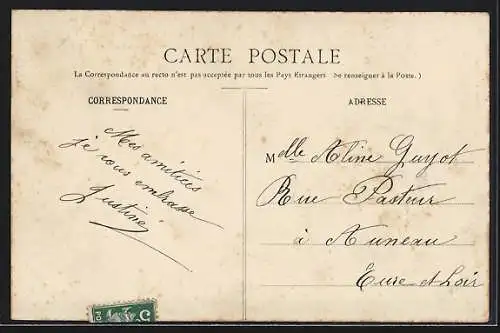 CARTE POSTALE
La Correspondance au recto n'est pas acceptée par tous les Pays Etrangers (Se renseigner à la Poste.)
CORRESPONDANCE
Mes amitiés
je vous embrasse
Justine
ADRESSE
Mlle Aline Guyot
Rue Pasteur
à Auneau
Eure-et-Loir